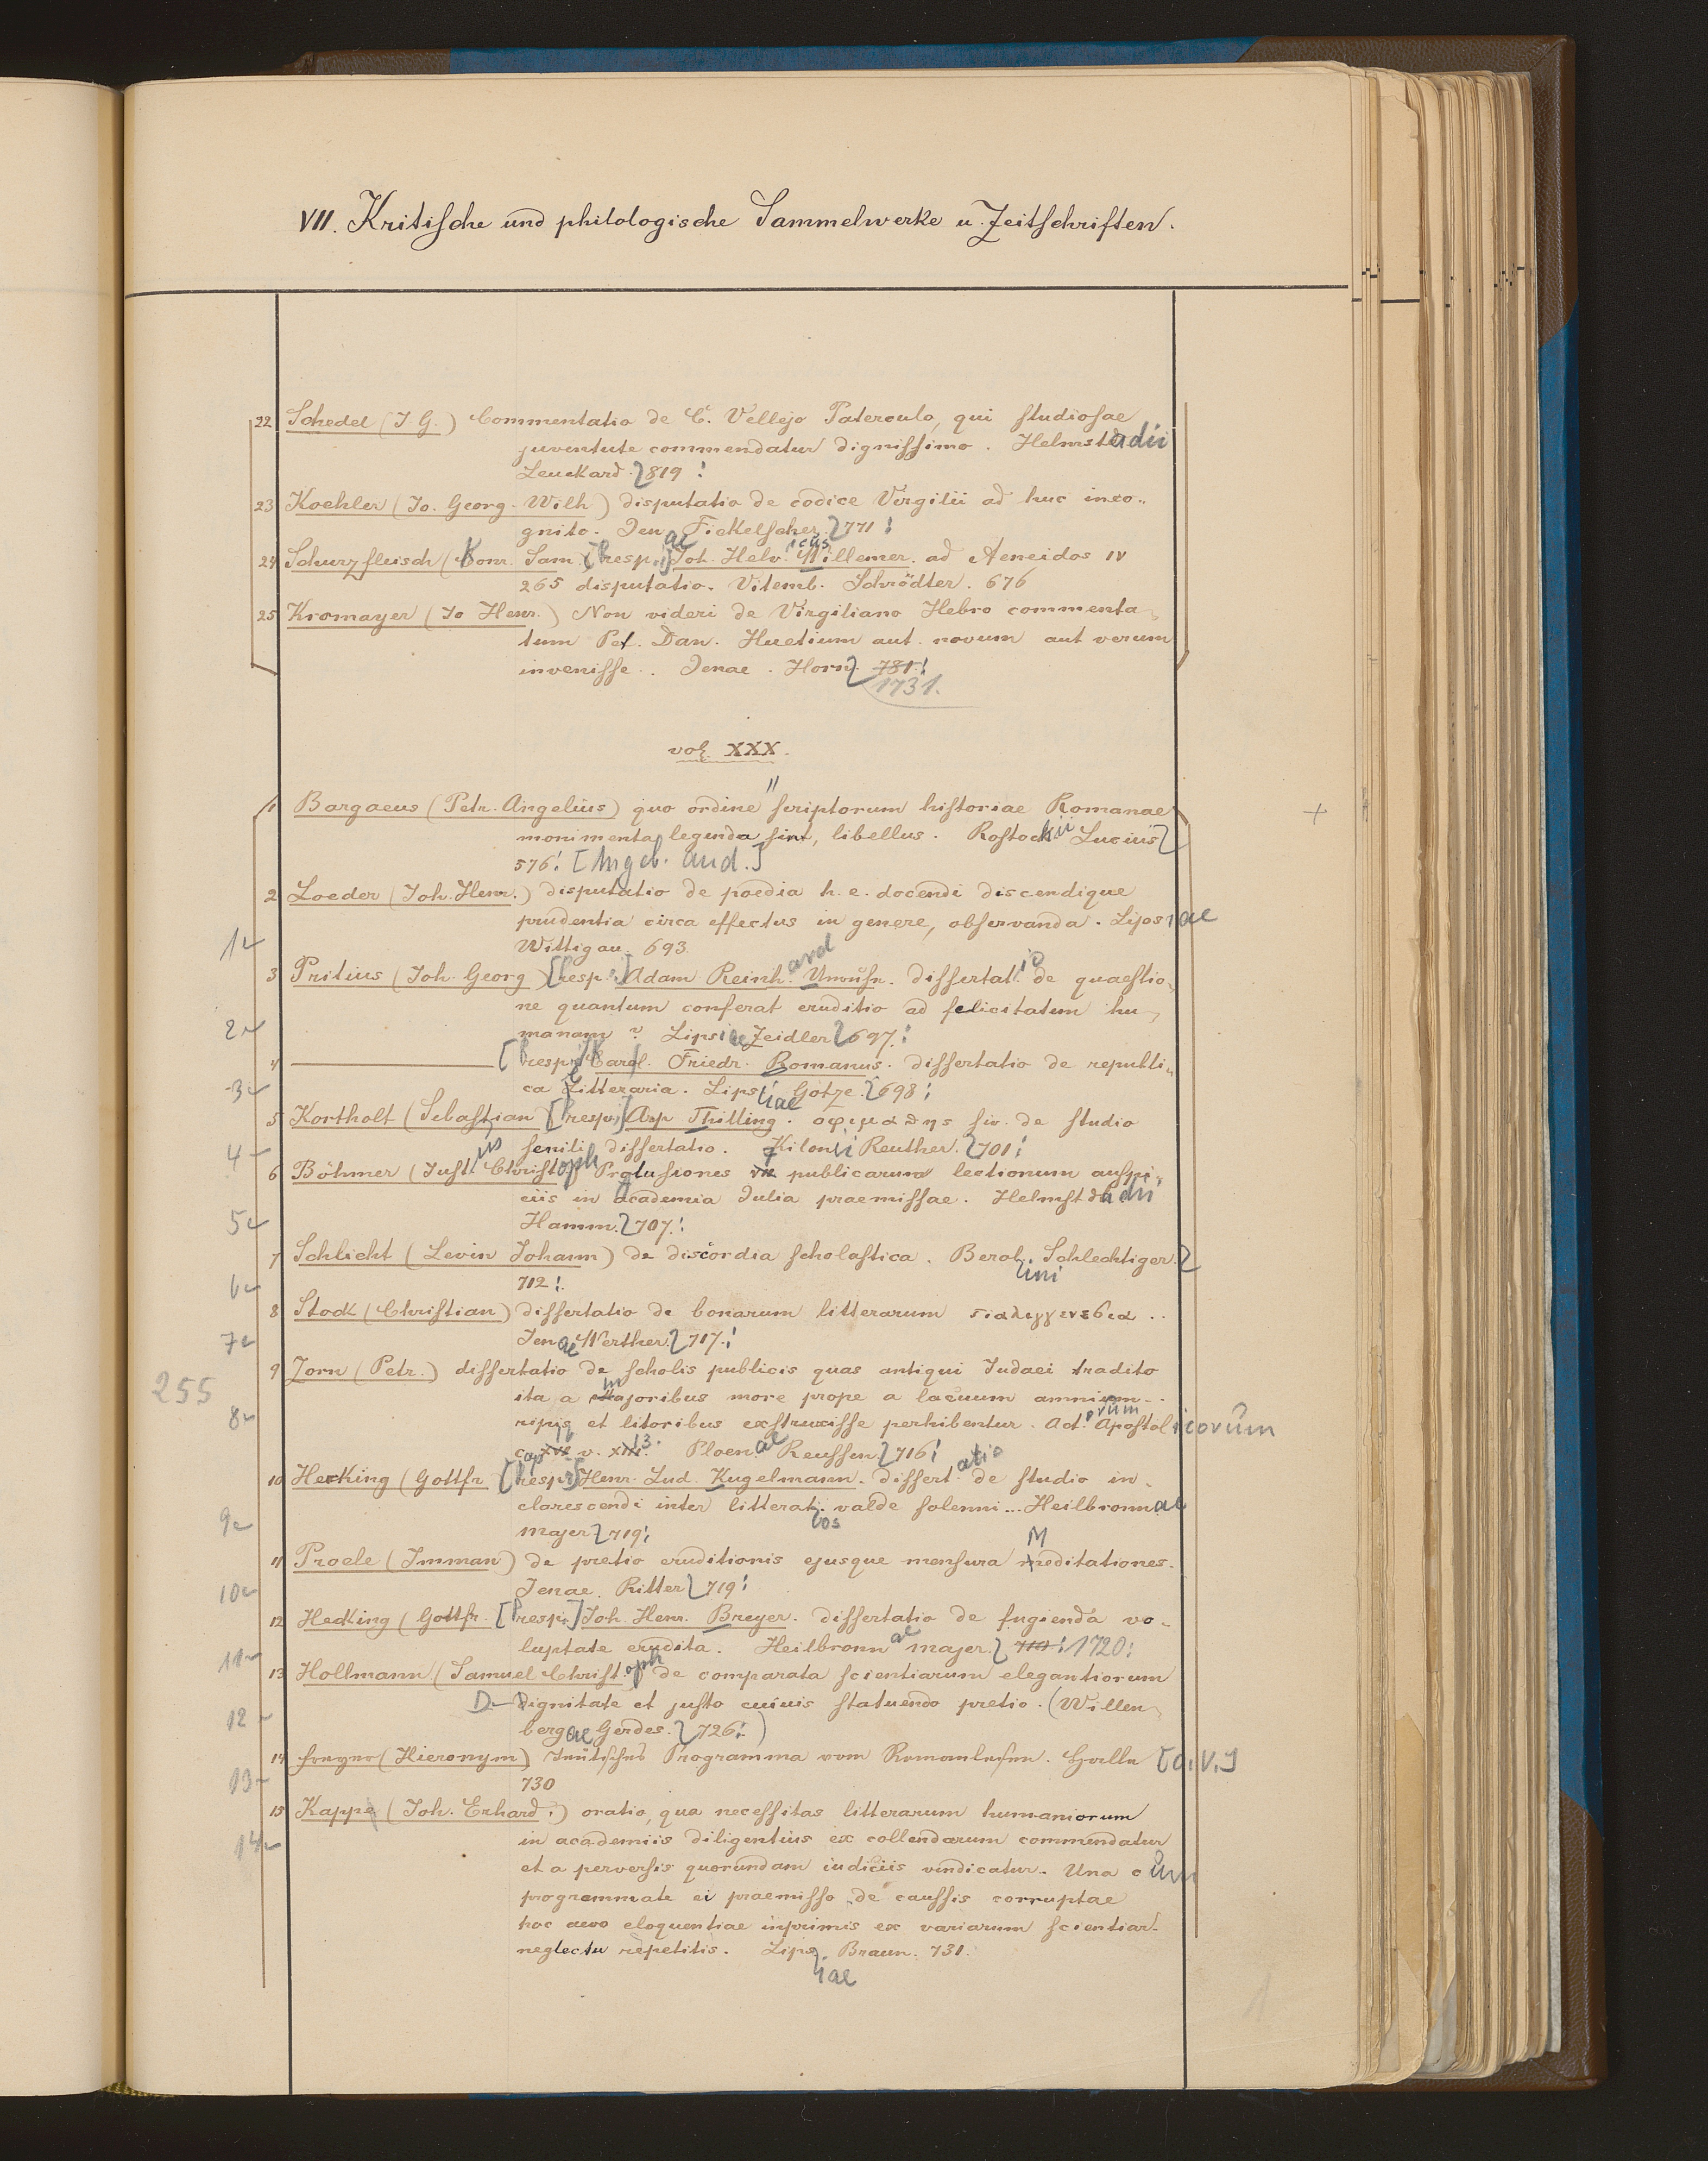 VII. Kritische und philologische Sammelwerke u. Zeitschriften.
22 Schedel (J. G.) Commentatio de C. Vellejo Paterculo, qui studiosae
juventute commendatur dignissimo. Helmstadii
Leuckard. 819!
23 Koehler (Jo. Georg. Wilh) disputatio de codice Virgilii ad huc inco-
gnito. Jenae Fickelscher. 771!
24 Schurzfleisch (Konr. Sam. [resp.] Joh. Helvicus Willemer. ad Aeneidos IV
265 disputatio. Vitemb. Schrödter. 676
25 Kromayer (Jo Henr.) Non videri de Virgiliano Hebro commenta-
tum Pet. Dan. Huetium aut novum aut verum
invenisse. Jenae. Horn. 781!
1731.
vol. XXX.
1 Bargaeus (Petr. Angelius) quo ordine scriptorum historiae Romanae
monimenta legenda sint, libellus. Rostochii Lucius
576! [Angeb. and.]
2 Loeder (Joh. Henr.) disputatio de poedia h. e. docendi discendique
prudentia circa effectus in genere, observanda. Lipsiae
1 Wittigau. 693.
3 Pritius (Joh. Georg) [resp.] Adam Reinhard. dissertatio de quaestio-
ne quantum conferat eruditio ad felicitatem hu-
2 manam? Lipsiae Zeidler 697!
4 [resp. Carol. Friedr. Romanus. dissertatio de republi-
3 ca litteraria. Lipsiae Gotze. 698!
5 Kortholt (Sebastian [resp.] Asp Thilling. οψιμαθης siv. de studio
4 senili dissertatio. Kilonii Reuther. 701!
6 Böhmer (Justus Christoph Prolusiones VII publicarum lectionum auspi-
ciis in academia Julia praemissae. Helmstadii
5 Hamm. 707!
7 Schlicht (Levin Johann) de discordia scholastica. Berolini Schlechtiger.
6 712!
8 Stock (Christian) dissertatio de bonarum litterarum παλιγγενεσια..
7 Jenae Werther. 717!
9 Zorn (Petr.) dissertatio de scholis publicis quas antiqui Judaei tradito
255
ita a majoribus more prope a lacuum amnium..
8 ripis et litoribus exstruxisse perhibentur. Act. Apostolicorum
cap XVI v. XIII 13. Ploenae Reussen. 716!
10 Hecking (Gottfr. [resp.] Henr. Lud. Kugelmann. dissertatio de studio in-
clarescendi inter litteratos valde solenni... Heilbronnae
9 Majer 719!
11 Proele (Imman) de pretio eruditionis ejusque mensura Meditationes.
10 Jenae. Ritter 719!
12 Hecking (Gottfr. [resp.] Joh. Henr. Breyer. dissertatio de fugienda vo-
luptate erudita. Heilbronnae Majer. 719! 1720!
11
13 Hollmann (Samuel Christoph de comparata scientiarum elegantiorum
Dignitate et justo cuiuis statuendo pretio. (Willen-
12 bergae Gerdes. 726!)
14 Freyer (Hieronym) Teutsches Programma vom Romanlesen. Halle [o. V.]
13 730
15 Kappe (Joh. Erhard.) oratio, qua necessitas litterarum humaniorum
14 in academiis diligentius ex collendarum commendatur
et a perversis quorundam iudiciis vindicatur. Una cum
programmate ei praemisso de caussis corruptae
hoc aevo eloquentiae inprimis ex variarum scientiar.
neglectu repetitis. Lipsiae Braun. 731.